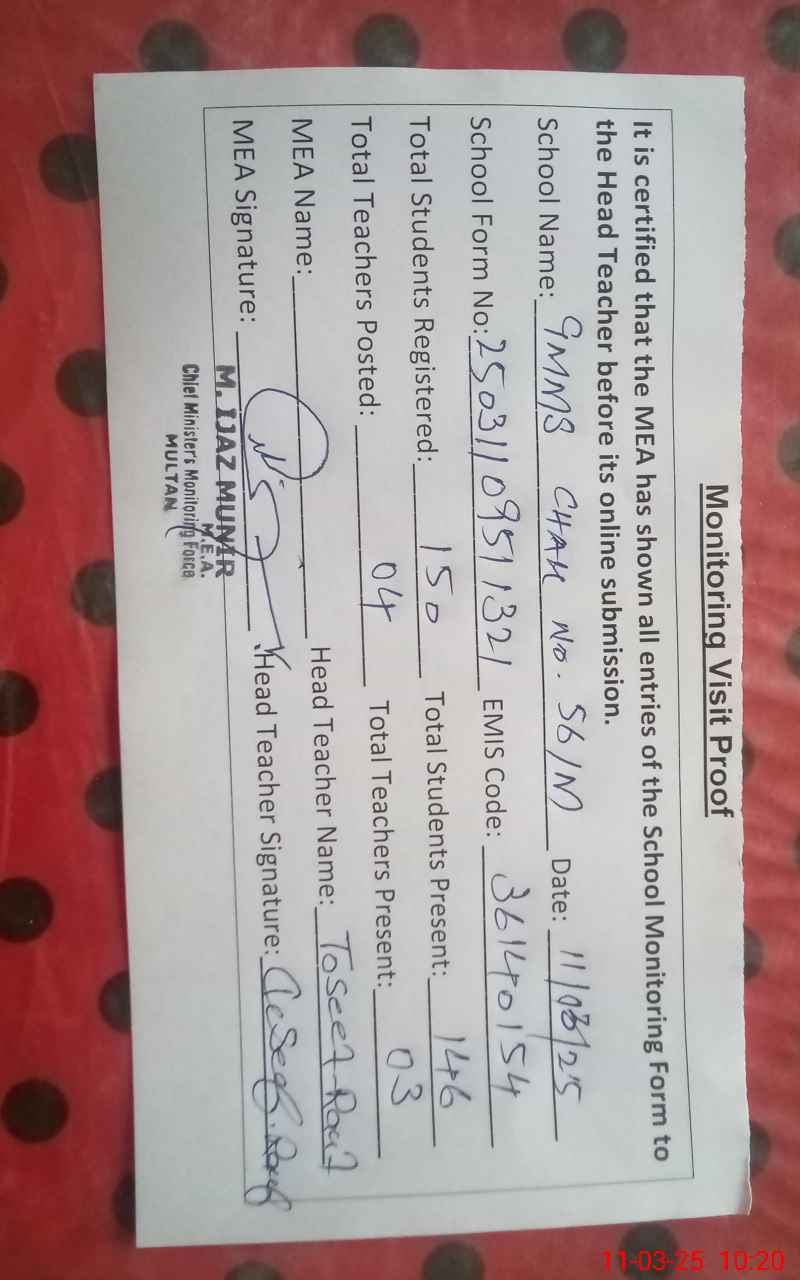 Monitoring Visit Proof
It is certified that the MEA has shown all entries of the School Monitoring Form to
the Head Teacher before its online submission.
School Name: GMMS CHAH No. 56/M Date: 11/03/25
School Form No: 25031109511321 EMIS Code: 36140154
Total Students Registered: 150 Total Students Present: 146
Total Teachers Posted: 04 Total Teachers Present: 03
MEA Name: Head Teacher Name: Toseef Rauf
MEA Signature: Head Teacher Signature:
M. IJAZ MUNIR
M.E.A.
Chief Minister's Monitoring Force
MULTAN
11-03-25 10:20